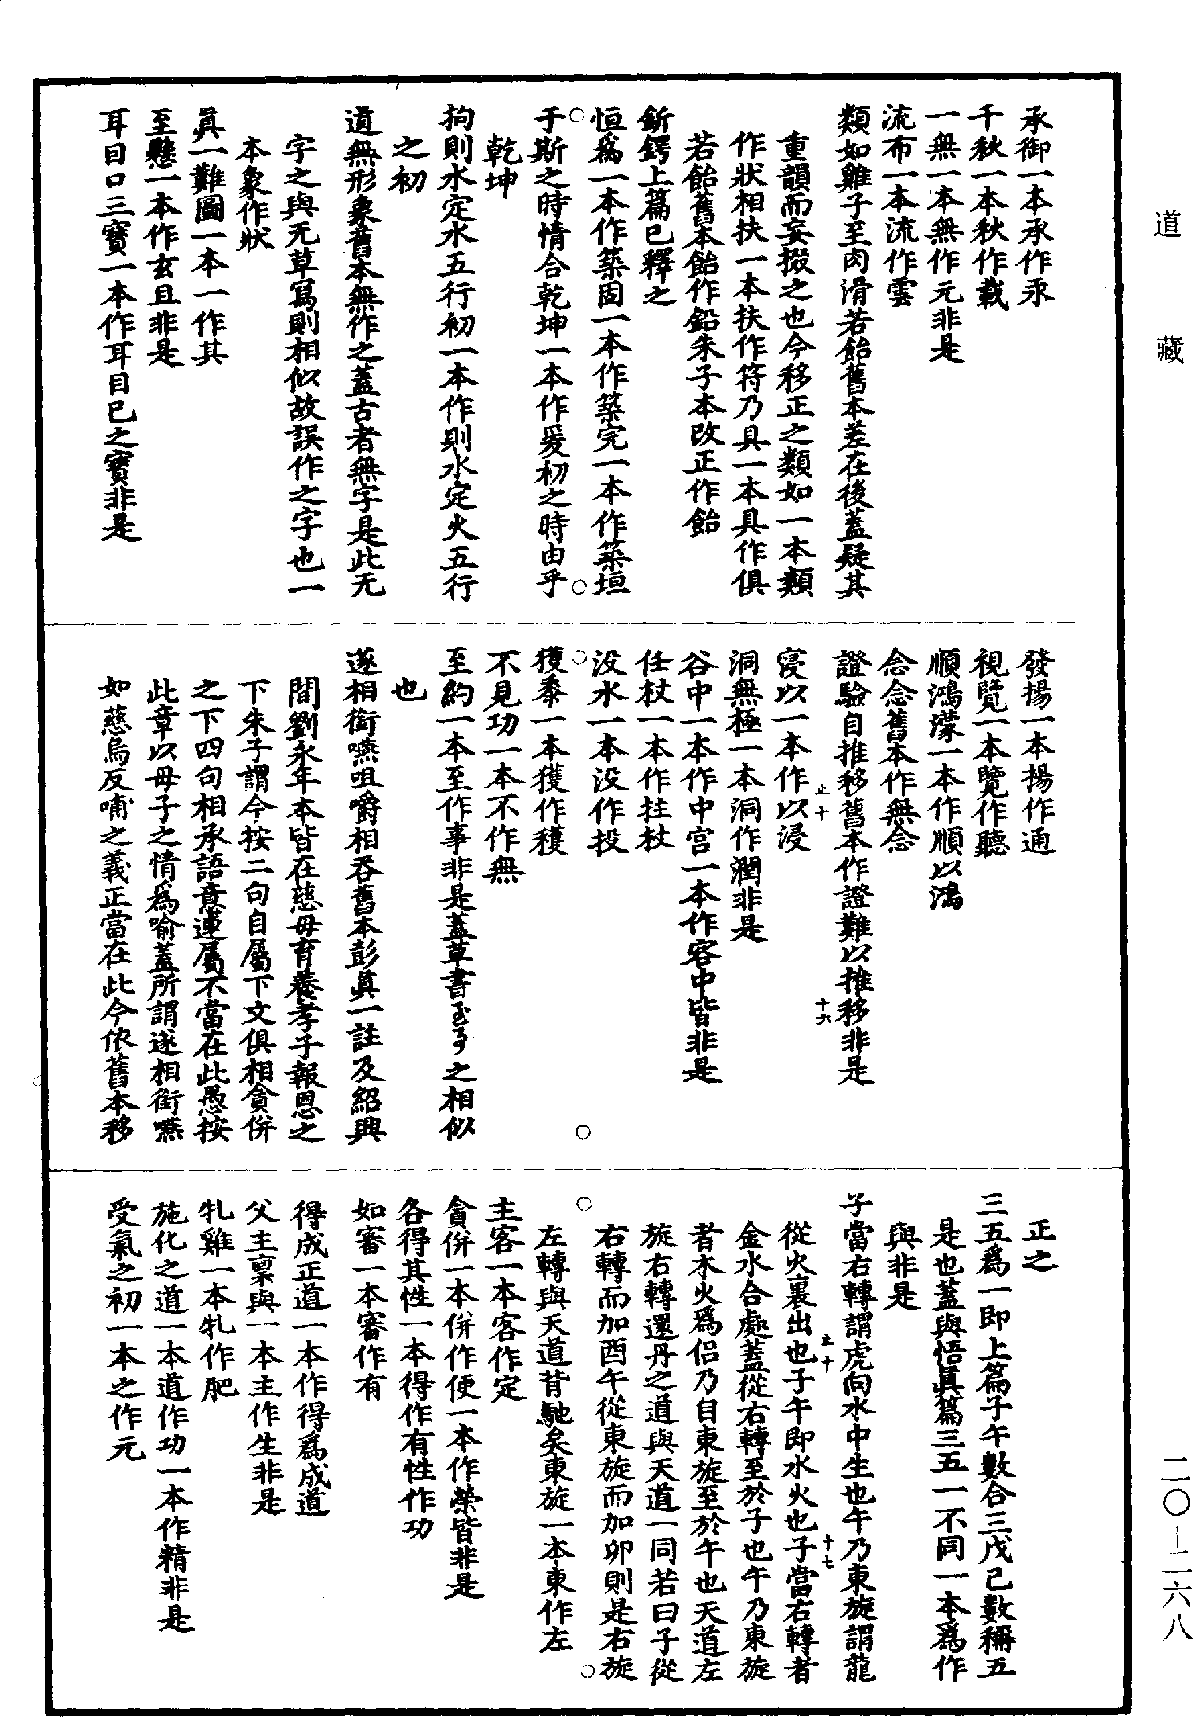 道藏
承御一本承作永
千秋一本秋作載
一無一本無作元非是
流布一本流作雲
類如雞子至肉滑若飴舊本差在後蓋疑其
重韻而妄掇之也今移正之類如一本類
作狀相扶一本扶作符乃具一本具作俱
若飴舊本飴作鉛朱子本改正作飴
釿鍔上篇已釋之
恒為一本作築固一本作築完一本作築垣
于斯之時情合乾坤一本作爰初之時由乎
乾坤
拘則水定水五行初一本作則水定火五行
之初
道無形象舊本無作之蓋古者無字是此无
字之與无草寫則相似故誤作之字也一
本象作狀
眞一難圖一本一作其
至懸一本作玄且非是
耳目口三寶一本作耳目已之寶非是
發揚一本揚作通
視覽一本覽作聽
順鴻濛一本作順以鴻
念念舊本作無念
證驗自推移舊本作證難以推移非是
寖以一本作以浸
洞無極一本洞作潤非是
谷中一本作中宮一本作客中皆非是
任杖一本作拄杖
没水一本没作投
獲黍一本獲作穫
不見功一本不作無
至約一本至作事非是蓋草書之相似
也
遂相銜嚥咀嚼相吞舊本彭眞一註及紹興
間劉永年本皆在慈母育養孝子報恩之
下朱子謂今按二句自屬下文俱相貪併
之下四句相承語意連屬不當在此愚按
此章以母子之情為喻蓋所謂遂相銜嚥
如慈烏反哺之義正當在此今依舊本移
正之
三五為一即上篇子午數合三戊己數稱五
是也蓋與悟眞篇三五一不同一本為作
與非是
子當右轉謂虎向水中生也午乃東旋謂龍
從火裏出也子午即水火也子當右轉者
金水合處蓋從右轉至於子也午乃東旋
者木火為侶乃自東旋至於午也天道左
旋右轉還丹之道與天道一同若曰子從
右轉而加酉午從東旋而加卯則是右旋
左轉與天道背馳矣東旋一本東作左
主客一本客作定
貪併一本併作便一本作榮皆非是
各得其性一本得作有性作功
如審一本審作有
得成正道一本作得為成道
父主稟與一本主作生非是
牝雞一本牝作肥
施化之道一本道作功一本作精非是
受氣之初一本之作元
二〇-二六八